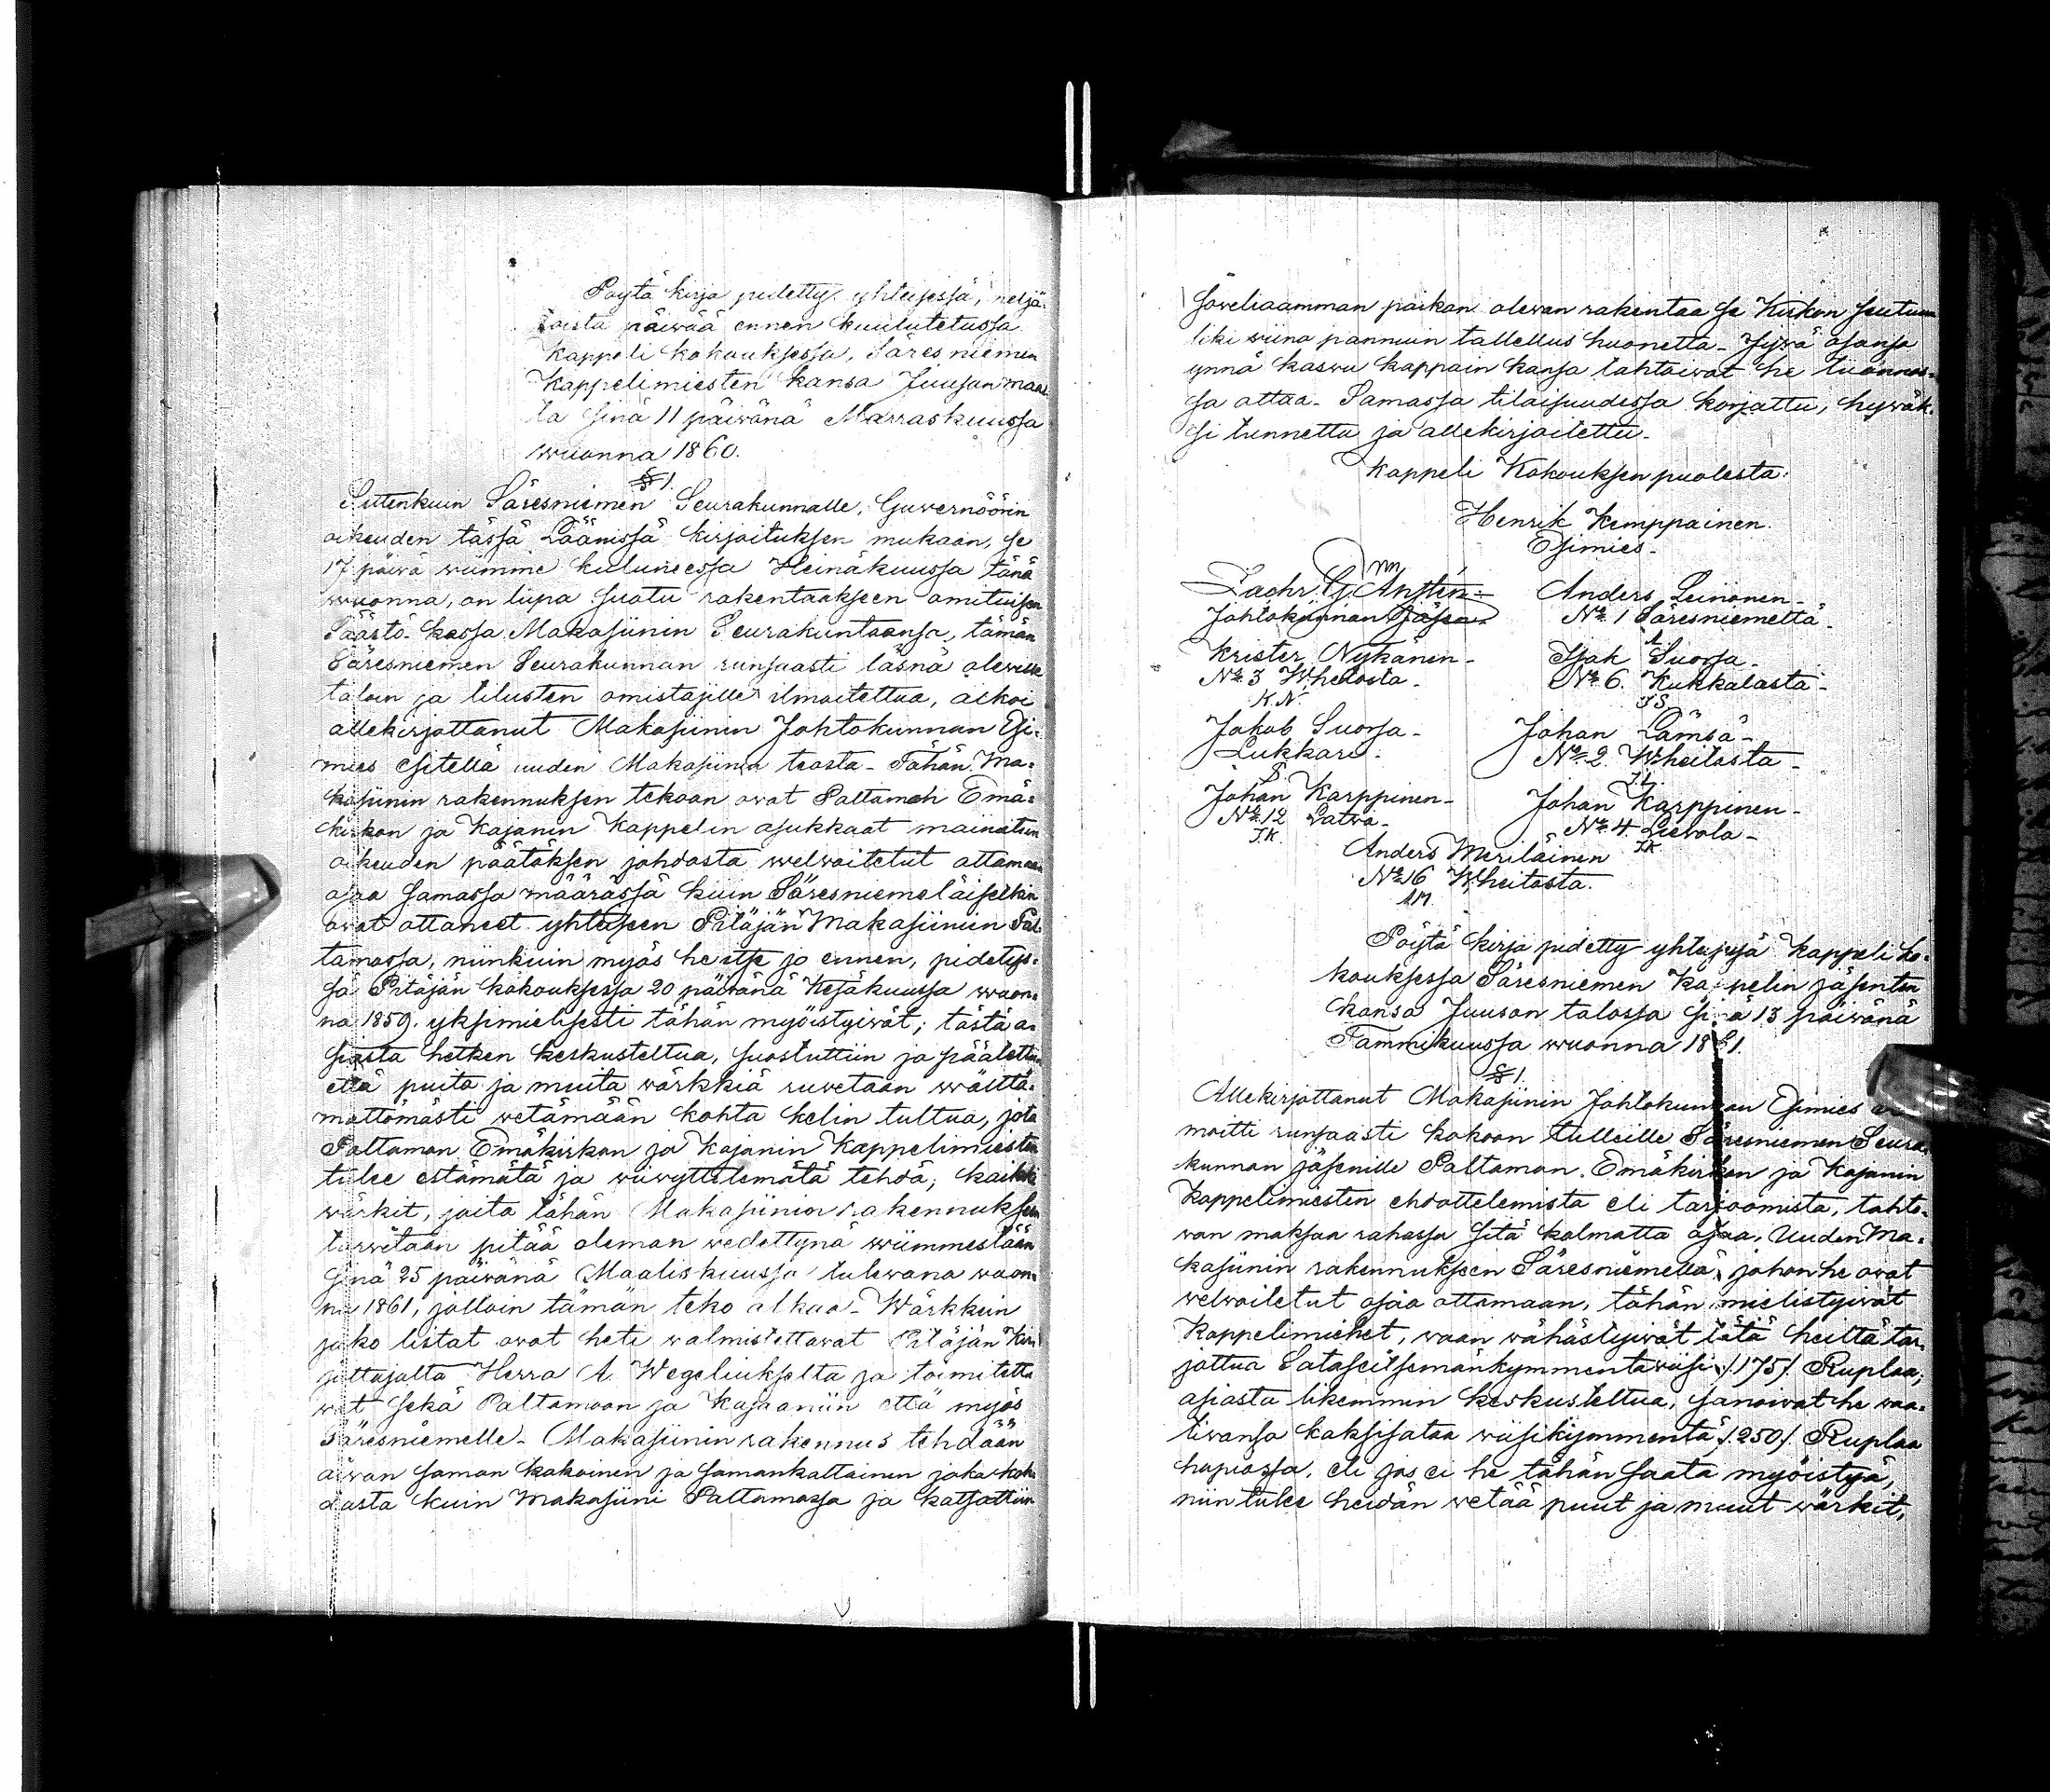 Poytä kirja pidetty yhteisessä, neljä-
toista päiwää ennen kuulutetussa
Kappeli kokouksessa, Säresniemen
Kappelimiesten kansa Juusan maal-
la sinä 11 päiwänä Marraskuussa
wuonna 1860.
§ 1.
Sittenkuin Säresniemen Seurakunnalle, Guwernöörin
oikeuden tässä Läänissä kirjoituksen mukaan, se
17 päiwä wiimme kuluneessa Heinäkuussa tänä
wuonna, on lupa suotu rakentaakseen omituisen
Säästö-kassa Makasiinin Seurakuntaansa, tämän
Säresniemen Seurakunnan runsaasti läsnä olewille
taloin ja tilusten omistajille ilmoitettua, aikoi
allekirjottanut Makasiinin Johtokunnan Esi-
mies esitellä uuden Makasiinin teosta - Tähän Ma-
kasiinin rakennuksen tekoon owat Paltamon Emä-
kirkon ja Kajanin Kappelin asukkaat mainitun
oikeuden päätöksen johdosta welwoitetut ottamaan
osaa samassa määrässä kuin Säresniemeläisetkin
owat ottaneet yhteiseen Pitäjän Makasiiniin Pal-
tamossa, niinkuin myös he itse jo ennen, pidetys-
sä Pitäjän kokouksessa 20 päiwänä Kesäkuussa wuon-
na 1859. yksimielisesti tähän myöistyiwät; tästä a-
siasta hetken keskusteltua, suostuttiin ja päätettiin
että puita ja muita wärkkiä ruwetaan wälttä-
mättömästi wetämään kohta kelin tultua, jota
Paltamon Emäkirkon ja Kajanin Kappelimiesten
tulee estämätä ja wiiwyttelemätä tehdä; kaikki
wärkit, joita tähän Makasiinin rakennuksen
tarwitaan pitää oleman wedettynä wiimmestään
sinä 25 päiwänä Maaliskuussa tulewana wuon-
na 1861, jolloin tämän teko alkaa - Wärkkein
jako listat owat heti walmistettawat Pitäjän Kir-
jottajalta Herra A. Wegeliukselta ja toimitetta-
wat sekä Paltamoon ja Kajaaniin että myös
Säresniemelle - Makasiinin rakennus tehdään
aiwan saman kokoinen ja samankaltainen joka koh-
dasta kuin Makasiini Paltamossa ja katsottiin
soweliaamman paikan olewan rakentaa se Kirkon seutuun
liki wiina pannuin tallellus huonetta - Jywä osansa
ynnä kaswu kappain kansa lahtoiwat he luonnos-
sa ottaa - Samassa tilaisuudessa korjattu, hywäk-
si tunnettu ja allekirjoitettu -
Kappeli Kokouksen puolesta:
Henrik Kemppainen.
Esimies -
Zachr. G. Ansten -
Johtokunnan Jäsen -
Anders Leinonen -
No 1 Säresniemeltä -
Krister Nykänen -
No 3 Wheitosta -
K.N.
Isak Suorsa -
No 6. Kukkalasta -
I S
Jakob Suorsa -
Lukkari -
S.
Johan Lämsä -
No 2 Wheitosta -
J.L.
Johan Karppinen -
No 12 Latwa -
J.K.
Johan Karppinen -
No 4. Liewola -
J.K
Anders Meriläinen
No 16 Wheitosta.
A M.
Poytä kirja pidetty yhteisesä Kappeli ko-
kouksessa Säresniemen Kappelin jäsenten
kansa Juuson talossa sinä 13 päiwänä
Tammikuussa wuonna 1861.
§ 1.
Allekirjottanut Makasiinin Johtokunnan Esimies
moitti runsaasti kokoon tulleille Säresniemen Seura-
kunnan jäsenille Paltamon Emäkirkon ja Kajanin
Kappelimiesten ehdottelemista eli tarjoomista, tahto-
wan maksaa rahassa sitä kolmatta osaa, Uuden Ma-
kasiinin rakennukseen Säresniemellä, johon he owat
welwoitetut osaa ottamaan, tähän mielistyiwät
Kappelimiehet, waan wähästyiwät tätä heiltä tar-
jottua Sataseitsemänkymmentäwiisi /.175/. Ruplaa;
asiasta likemmin keskusteltua, sanoiwat he waa-
tiwansa kaksisataa wiisikymmentä /.250/. Ruplaa
hopiassa, eli jos ei he tähän saata myöistyä,
niin tulee heidän wetää puut ja muut wärkit,